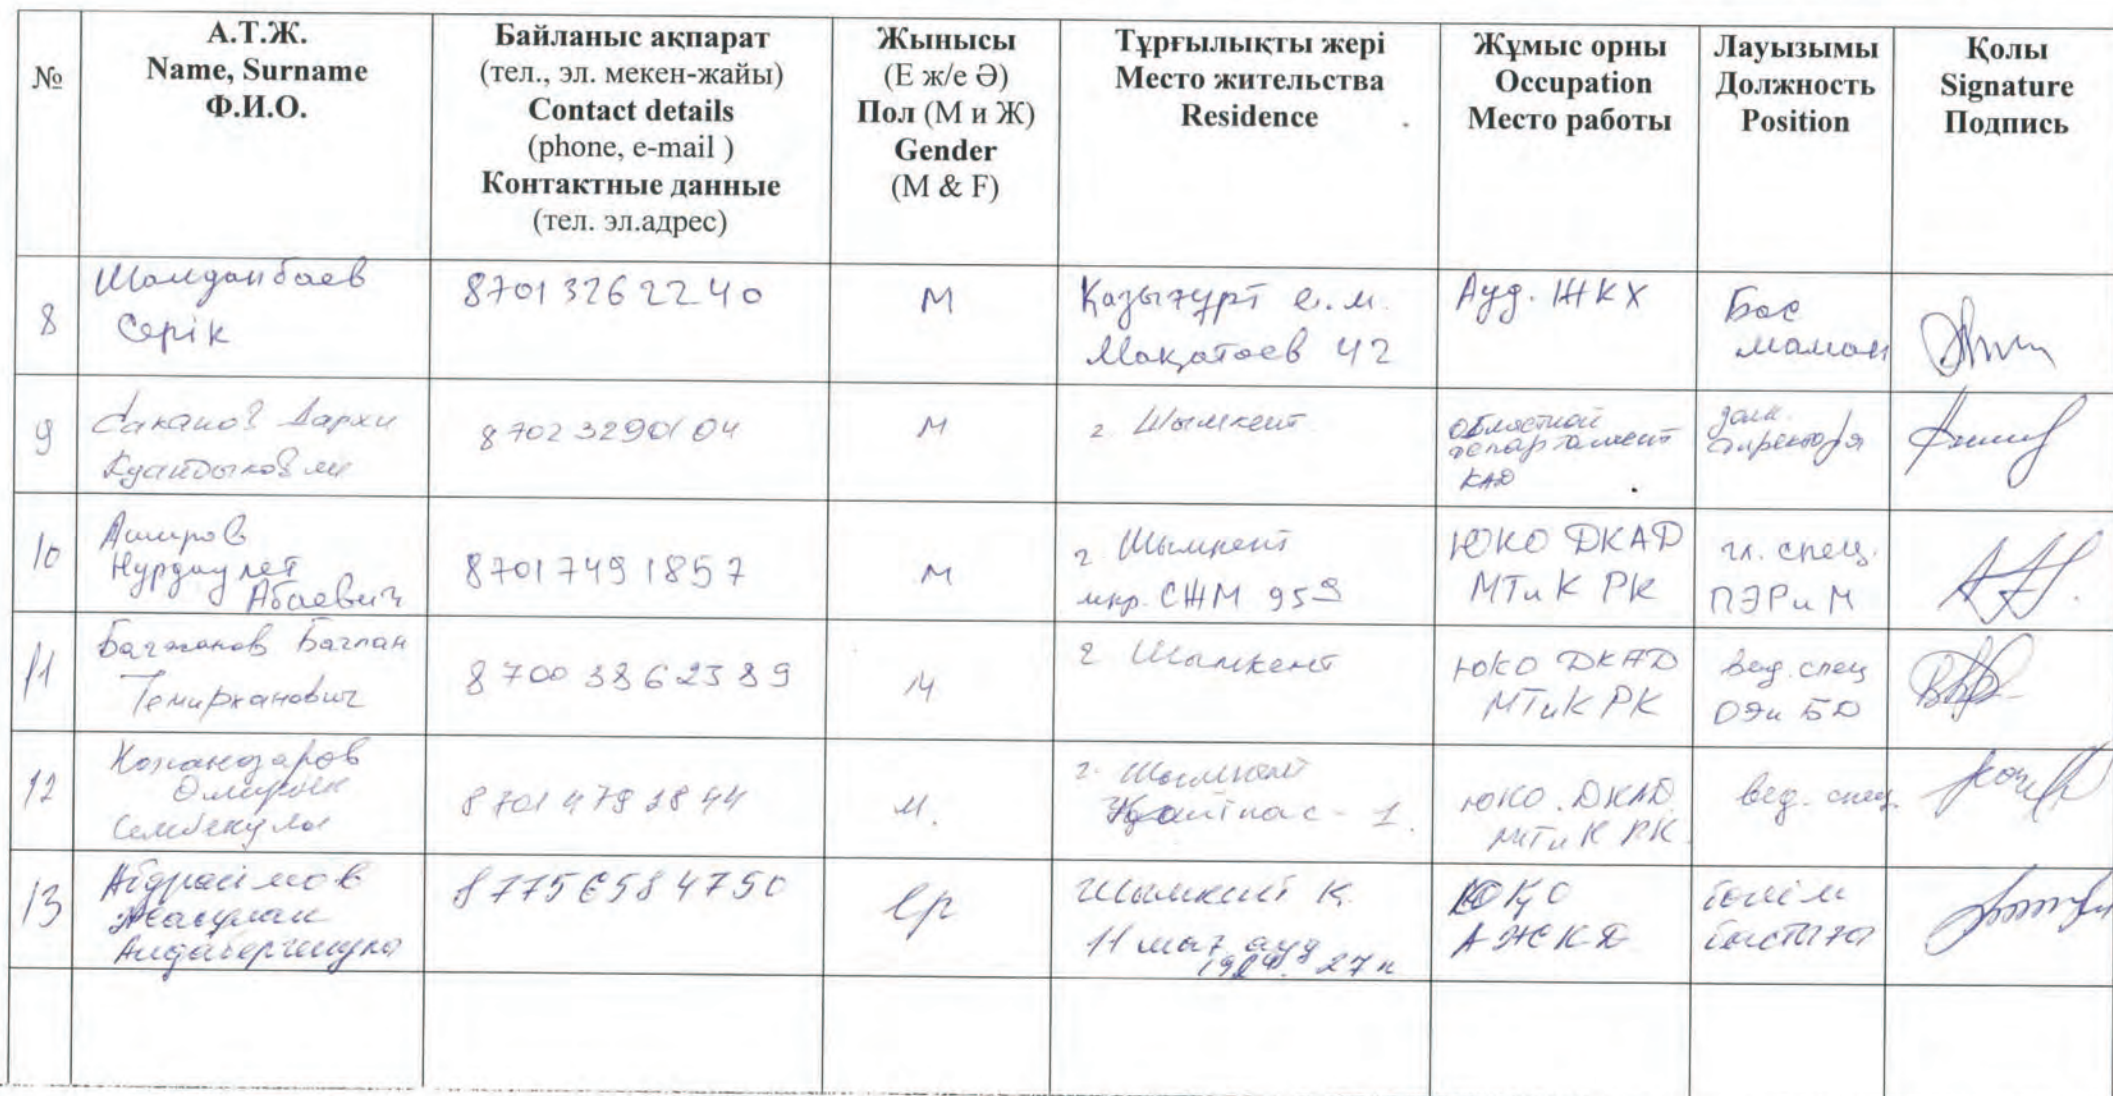 №
А.Т.Ж.
Name, Surname
Ф.И.О.
Байланыс ақпарат
(тел., эл. мекен-жайы)
Contact details
(phone, e-mail )
Контактные данные
(тел. эл.адрес)
Жынысы
(Е ж/е Ә)
Пол (М и Ж)
Gender
(M & F)
Тұрғылықты жері
Место жительства
Residence
Жұмыс орны
Occupation
Место работы
Лауызымы
Должность
Position
Қолы
Signature
Подпись
8
Шалданбаев
Серік
87013262240
М
Қазығұрт е.м.
Мақатаев 42
Ауд. ЖКХ
Бас
маман
9
Саканов Дархи
87023290104
М
г. Шымкент
областной
департамент
КАД
зам.
директора
10
Аширов
Нурдаулет
Абаевич
87017491857
М
г. Шымкент
мкр. СЖМ 959
ЮКО ДКАД
МТиК РК
гл. спец.
ПЭРиМ
11
Багжанов Баглан
Темирханович
87003862389
М
г. Шымкент
ЮКО ДКАД
МТиК РК
вед. спец
ОЭиБД
12
Кожаназаров
87014793844
М.
г. Шымкент
Қайтпас - 1.
ЮКО. ДКАД.
МТиК РК.
вед. спец.
13
Абдраимов
Жасулан
Андабергенулы
87756584750
ер
Шымкент қ.
11 мағ. ауд
27
ОҚО
АЖКД
бөлім
бастығы